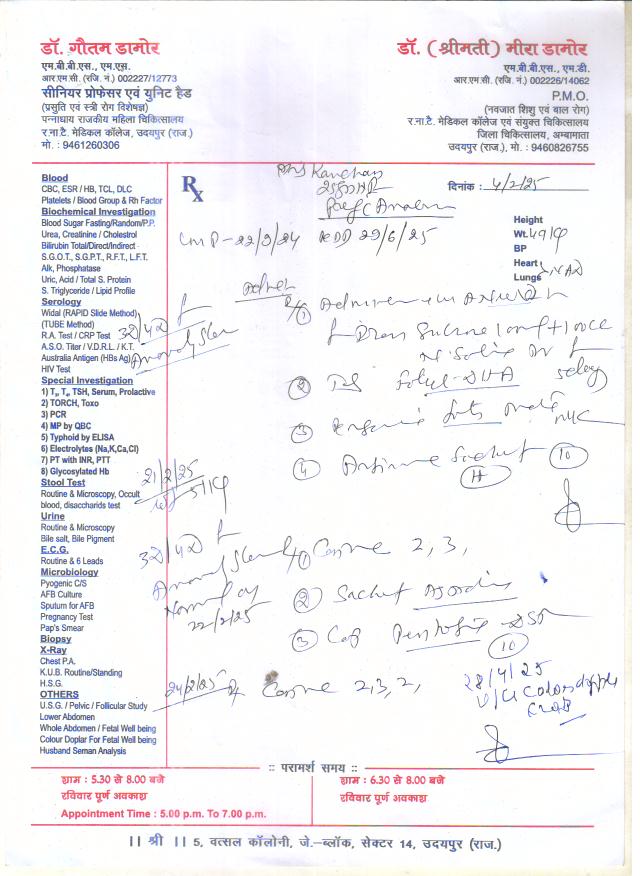 डॉ. गौतम डामोर
एम.बी.बी.एस., एम.एस.
आर.एम.सी. (रजि. नं.) 002227/12773
सीनियर प्रोफेसर एवं युनिट हैड
(प्रसुति एवं स्त्री रोग विशेषज्ञ)
पन्नाधाय राजकीय महिला चिकित्सालय
र.ना.टै. मेडिकल कॉलेज, उदयपुर (राज.)
मो. : 9461260306
डॉ. (श्रीमती) मीरा डामोर
एम.बी.बी.एस., एम.डी.
आर.एम.सी. (रजि. नं.) 002226/14062
P.M.O.
(नवजात शिशु एवं बाल रोग)
र.ना.टै. मेडिकल कॉलेज एवं संयुक्त चिकित्सालय
जिला चिकित्सालय, अम्बामाता
उदयपुर (राज.), मो. : 9460826755
Blood
CBC, ESR / HB, TCL, DLC
Platelets / Blood Group & Rh Factor
Biochemical Investigation
Blood Sugar Fasting/Random/P.P.
Urea, Creatinine / Cholestrol
Bilirubin Total/Direct/Indirect
S.G.O.T., S.G.P.T., R.F.T., L.F.T.
Alk, Phosphatase
Uric, Acid / Total S. Protein
S. Triglyceride / Lipid Profile
Serology
Widal (RAPID Slide Method)
(TUBE Method)
R.A. Test / CRP Test
A.S.O. Titer / V.D.R.L. / K.T.
Australia Antigen (HBs Ag)
HIV Test
Special Investigation
1) T3, T4, TSH, Serum, Prolactive
2) TORCH, Toxo
3) PCR
4) MP by QBC
5) Typhoid by ELISA
6) Electrolytes (Na,K,Ca,Cl)
7) PT with INR, PTT
8) Glycosylated Hb
Stool Test
Routine & Microscopy, Occult
blood, disaccharids test
Urine
Routine & Microscopy
Bile salt, Bile Pigment
E.C.G.
Routine & 6 Leads
Microbiology
Pyogenic C/S
AFB Culture
Sputum for AFB
Pregnancy Test
Pap's Smear
Biopsy
X-Ray
Chest P.A.
K.U.B. Routine/Standing
H.S.G.
OTHERS
U.S.G. / Pelvic / Follicular Study
Lower Abdomen
Whole Abdomen / Fetal Well being
Colour Doplar For Fetal Well being
Husband Seman Analysis
Rx
Kanchan
दिनांक : 4/2/25
LMP - 22/9/24 EDD 29/6/25
Height
Wt. 49
BP
Heart
Lungs NAD
3D/4D
①
②
③
④ Sachet 10
21/2/25
3D/4D
① 2, 3,
22/2/25
② Sachet
③ Cap DSR
10
24/2/25 2, 3, 2,
28/4/25
:: परामर्श समय ::
शाम : 5.30 से 8.00 बजे
रविवार पूर्ण अवकाश
Appointment Time : 5.00 p.m. To 7.00 p.m.
शाम : 6.30 से 8.00 बजे
रविवार पूर्ण अवकाश
|| श्री || 5, वत्सल कॉलोनी, जे.–ब्लॉक, सेक्टर 14, उदयपुर (राज.)